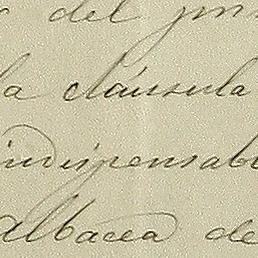 del
la cláusula
indispensab
albacea de